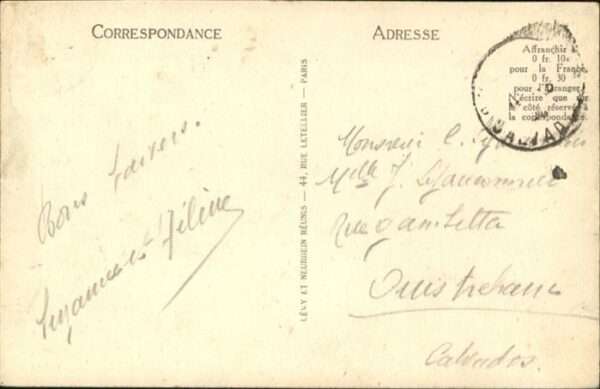 CORRESPONDANCE
ADRESSE
Affranchir à
0 fr. 10
pour la France,
0 fr. 30
pour l'Étranger
N'écrire que sur
le côté réservé à
la correspondance.
LÉVY ET NEURDEIN RÉUNIS — 44, RUE LETELLIER — PARIS
Bons baisers.
Suzanne et
Monsieur
Melle J.
Rue Gambetta
Ouistreham
Calvados.